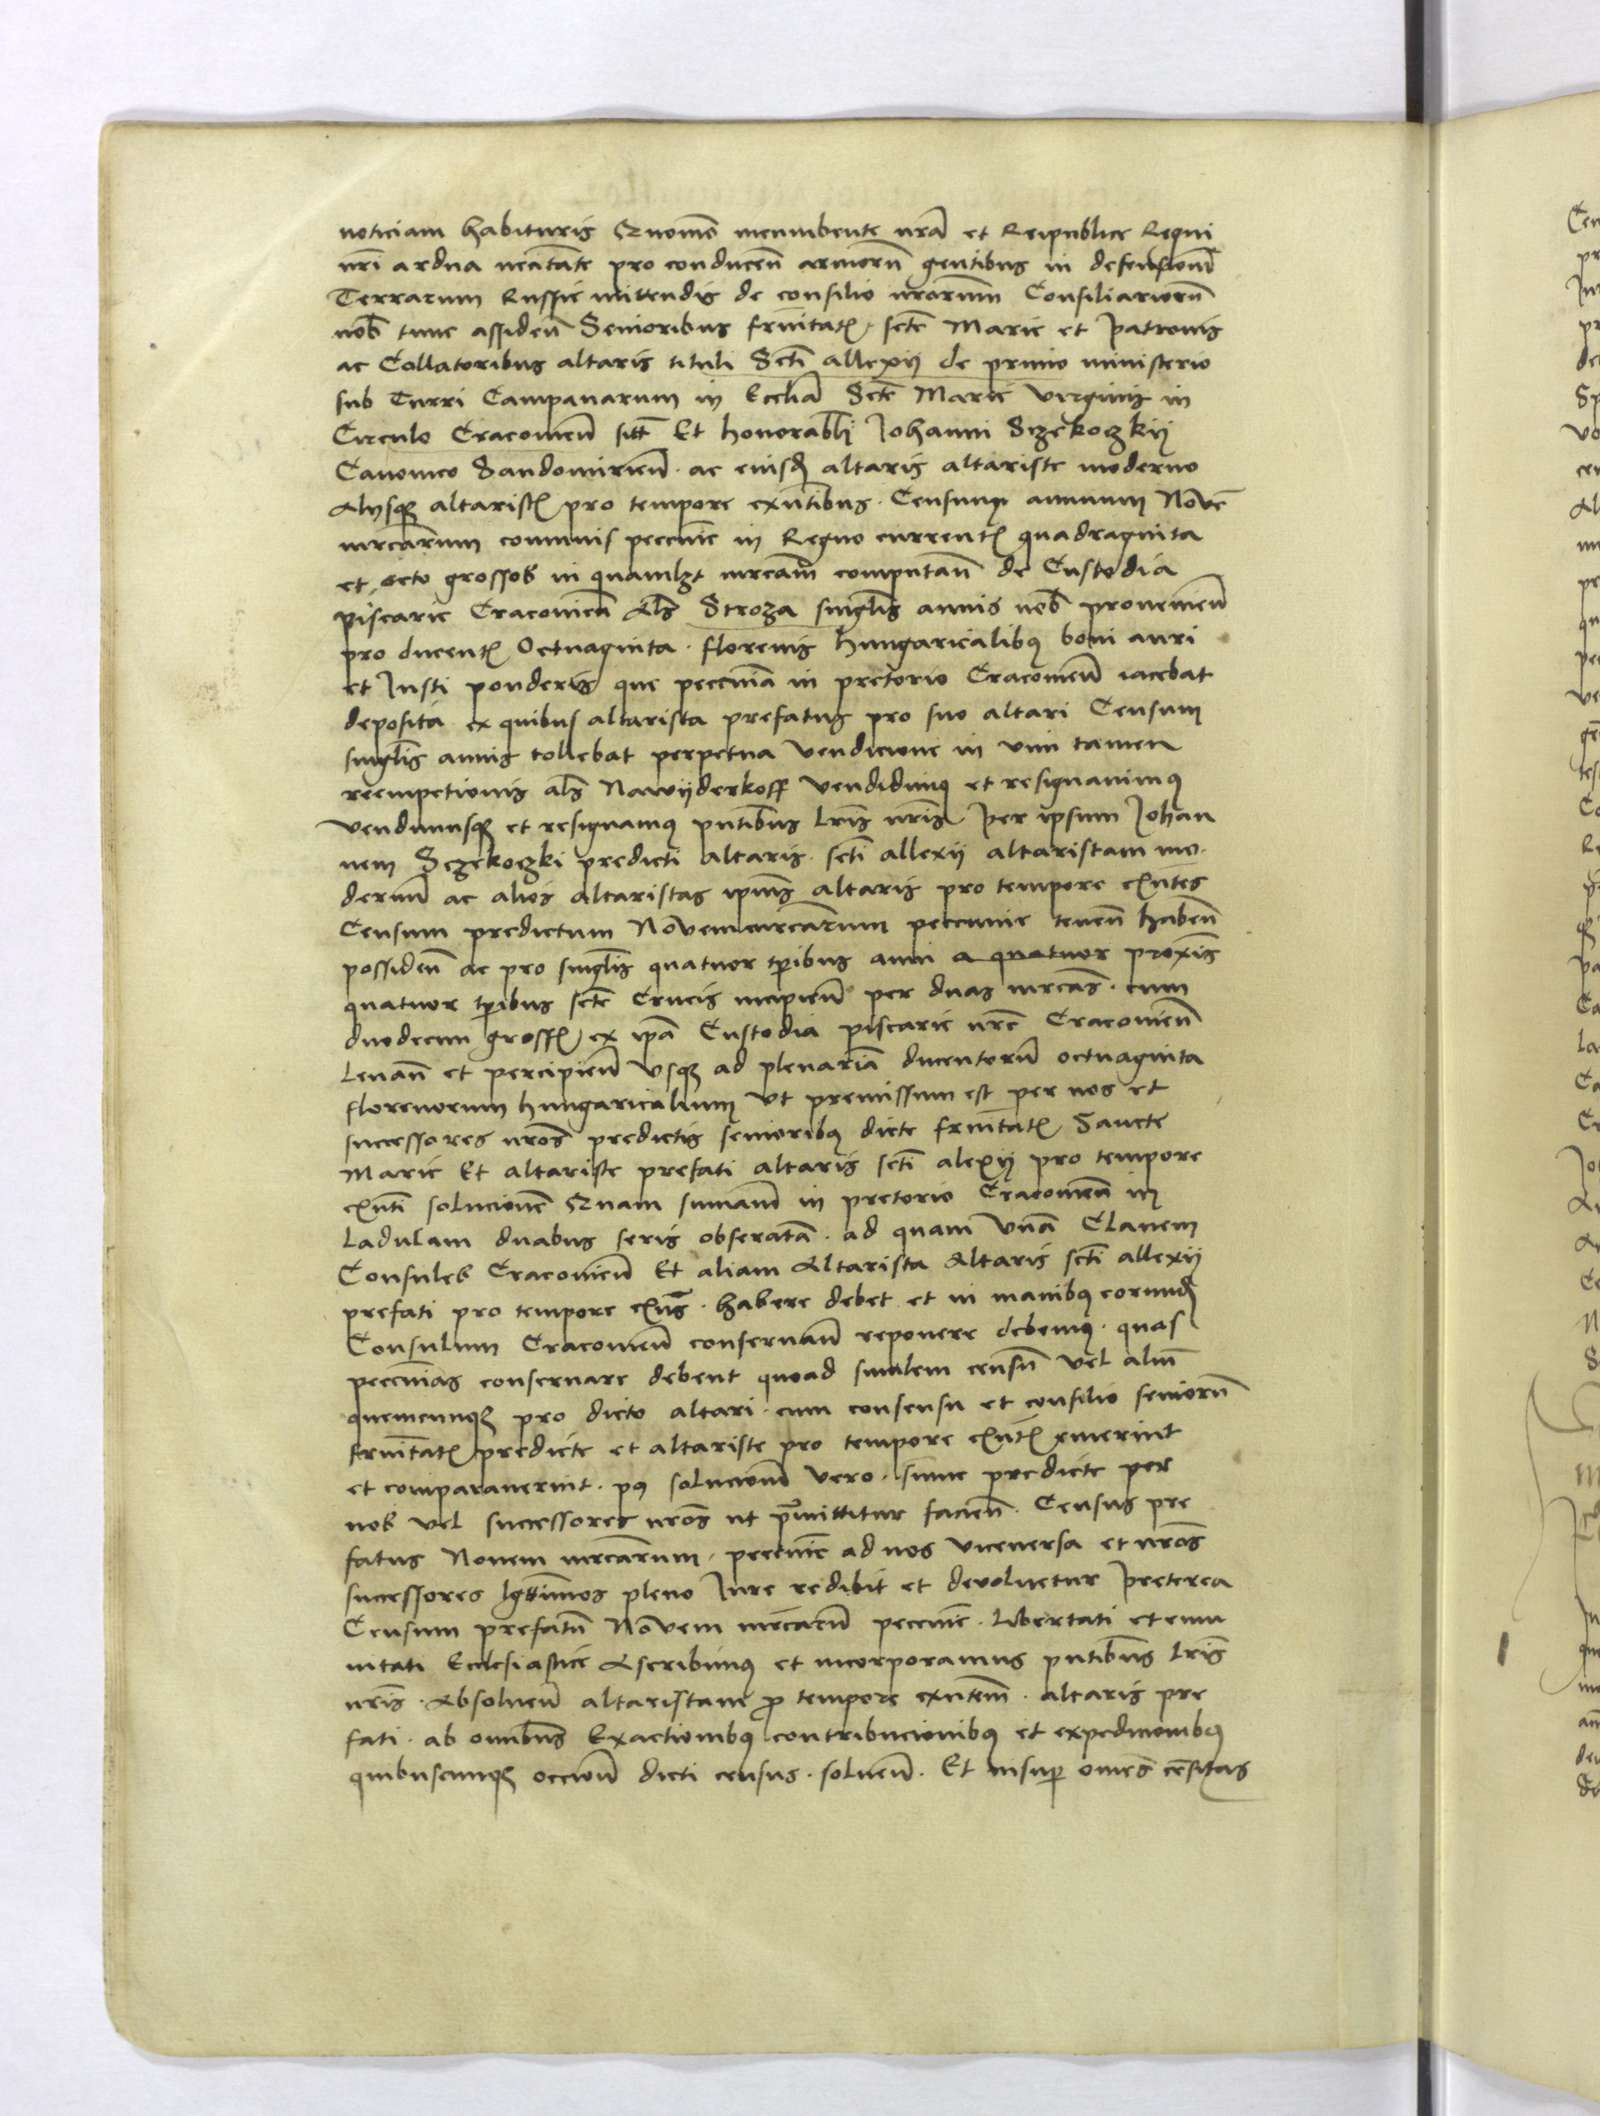 noticiam habituris Quomo incumbente nrā et Reipublice Regni
nri ardua nēitate pro conduceñ armorū gentibus in defensionē
Terrarum Russie mittendis de consilio nrorum Consiliariorū
nob tunc assideñ Senioribus frnitatis scte Marie et patronis
ac Collatoribus altaris tituli Scti allexij de primo ministerio
sub Turri Campanarum in Ecclia Scte Marie virginis in
Circulo Cracovieñ sitt Et honorabli Johanni Sczekoczkij
Canonico Sandomirieñ ac eiusdem altaris altariste moderno
Alijsque altaristis pro tempore exntibus Censum annuum Nove
mrcarum comunis peccnie in Regno currentis quadraginta
et octo grossos in quamlzt mrcam computañ de Custodia
piscarie Cracovieñ als Stroza singlis annis nob provenieñ
pro ducentis Octuaginta florenis hungaricalibus boni auri
et Justi ponderis que peccnia in pretorio Cracovieñ iacebat
deposita ex quibus altarista prefatus pro suo altari Censum
singlis annis tollebat perpetua vendicione in vim tamen
reempcionis als Nawijderkoff vendidimus et resignavimus
vendimusque et resignamus pntibus lris nris Per ipsum Johan
nem Sczekoczki predicti altaris scti allexij altaristam mo
dernū ac alios altaristas ipius altaris pro tempore exntes
Censum predictum Novem mrcarum peccunie teneñ habeñ
possideñ ac pro singlis quatuor tpribus anni a quatuor proxis
quatuor tpribus scte Crucis incipieñ per duas mrcas cum
duodecim grossis ex ipa Custodia piscarie nre Cracovieñ
Levañ et percipieñ Usque ad plenariā ducentorū octuaginta
florenorum hungaricalium Ut premissum est per nos et
successores nros predictis senioribus dicte frnitatis Sancte
Marie Et altariste prefati altaris scti alexij pro tempore
exnti solucionē Quam sumam in pretorio Cracovieñ in
Ladulam duabus seris obseratā ad quam Unā Clavem
Consules Cracovieñ Et aliam Altarista Altaris scti allexij
prefati pro tempore exns habere debet et in manibus eorundem
Consulum Cracovieñ conservañ reponere debemus quas
peccnias conservare debent quoad similem censū vel aliū
quemcunque pro dicto altari cum consensu et consilio seniorū
frnitatis predicte et altariste pro tempore exntis emerint
et comparaverint pus solucionē vero sume predicte per
nos vel successores nros ut prmittitur facieñ Census pre
fatus Novem mrcarum peccnie ad nos viceversa et nros
successores lgttimos pleno Jure redibit et devolvetur Preterea
Censum prefatū Novem mrcarū peccnie Libertati et emu
nitati Ecclesiastice Ascribimus et incorporamus pntibus lris
nris Absolveñ altaristam pro tempore exntem altaris pre
fati ab omibus Exactionibus contribucionibus et expedicionibus
quibuscunque occioñ dicti census solveñ Et insuper omnes censitas